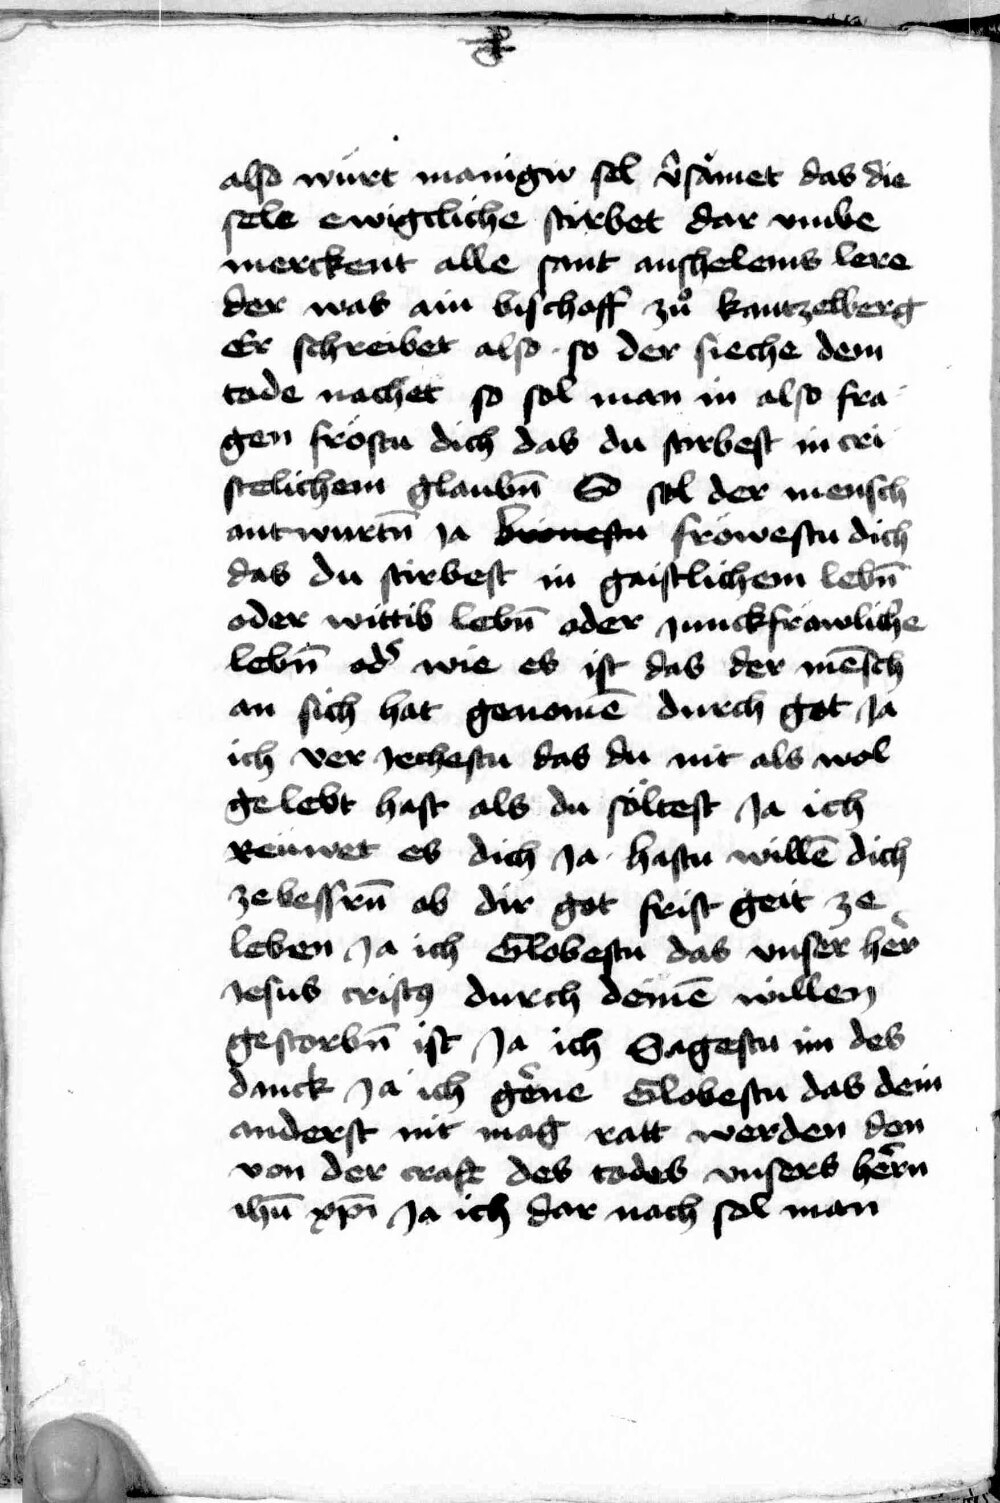 also würt manigiv sel v̾sämet das die
sele ewigcliche stirbet dar vmbe
merckent alle sant anshelems lere
der was ain bischoff zů kantzelberg
Er schreibet also · so der sieche dem
tode nachet so sol man in also fra
gen fröstu dich das du stirbest in cri
stelichem glaubn̄ So sol der mensch
antwurtn̄ Ja fröwestu dich
das du stirbest in gaistlichem lebn̄
oder wittib lebn̄ oder Junckfrawliche
lebn̄ od̾ wie es ist das der mēsch
an sich hat genomē durch got Ja
ich ver Jechestu das du nit als wol
gelebt hast als du söltest Ja ich
Reüwet es dich Ja · hastu willē dich
ze bessrn̄ ob dir got frist geit ze
leben Ja ich Globestu das vnser her̾
Jesus cristꝰ durch deinē willen
gestorbn̄ ist Ja ich Sagestu im des
danck Ja ich ge̾ne Globestu das dein
anderst nit mag ratt werden den
von der craft des todes vnsers he̾rn
ihū xp̄i Ja ich dar nach sol man